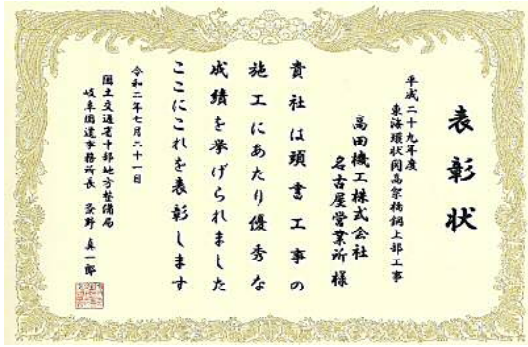 表彰状
平成二十九年度
東海環状岡高架橋鋼上部工事
高田機工株式会社
名古屋営業所様
貴社は頭書工事の
施工にあたり優秀な
成績を挙げられました
ここにこれを表彰します
令和二年七月二十一日
国土交通省中部地方整備局
岐阜国道事務所長 野 真一郎